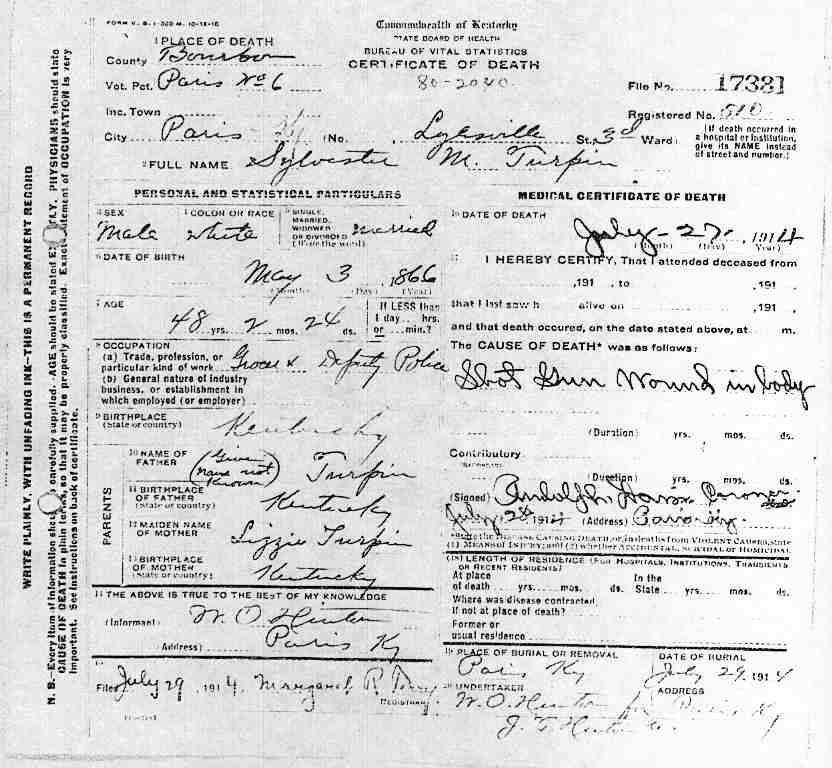 FORM V. S. 1-
Commonwealth of Kentucky
STATE BOARD OF HEALTH
BUREAU OF VITAL STATISTICS
CERTIFICATE OF DEATH
80-2040
1 PLACE OF DEATH
County Bourbon
Vot. Pct. Paris No 6
File No. 17381
Inc. Town
Registered No. 510
City Paris Ky (No. , Lylesville St., 3d Ward)
[If death occurred in a hospital or institution, give its NAME instead of street and number.]
2 FULL NAME Sylvester M. Turpin
PERSONAL AND STATISTICAL PARTICULARS
3 SEX Male
4 COLOR OR RACE white
5 SINGLE, MARRIED, WIDOWED OR DIVORCED (Write the word) Married
6 DATE OF BIRTH
May 3 , 1866
(Month) (Day) (Year)
7 AGE
48 yrs. 2 mos. 24 ds.
If LESS than 1 day.... hrs. or.... min.?
8 OCCUPATION
(a) Trade, profession, or particular kind of work Grocer & Deputy Police
(b) General nature of industry
business, or establishment in
which employed (or employer)
9 BIRTHPLACE
(State or country) Kentucky
PARENTS
10 NAME OF FATHER (Given name not known) Turpin
11 BIRTHPLACE OF FATHER (State or country) Kentucky
12 MAIDEN NAME OF MOTHER Lizzie Turpin
13 BIRTHPLACE OF MOTHER (State or country) Kentucky
14 THE ABOVE IS TRUE TO THE BEST OF MY KNOWLEDGE
(Informant) W. O. Hinton
(Address) Paris Ky
15
Filed July 29, 1914, Margaret P.
REGISTRAR
MEDICAL CERTIFICATE OF DEATH
16 DATE OF DEATH
July - 27 , 1914
(Month) (Day) (Year)
17 I HEREBY CERTIFY, That I attended deceased from
,191 , to ,191 ,
that I last saw h alive on ,191 ,
and that death occured, on the date stated above, at m.
The CAUSE OF DEATH* was as follows:
Shot Gun Wound in body
(Duration) yrs. mos. ds.
Contributory
(Duration) yrs. mos. ds.
(Signed) Rudolph Coroner
July 28 1914 (Address) Paris Ky.
*State the DISEASE CAUSING DEATH, or, in deaths from VIOLENT CAUSES, state
(1) MEANS OF INJURY; and (2) whether ACCIDENTAL, SUICIDAL or HOMICIDAL
18 LENGTH OF RESIDENCE (FOR HOSPITALS, INSTITUTIONS, TRANSIENTS
OR RECENT RESIDENTS)
At place of death yrs. mos. ds. In the State yrs. mos. ds.
Where was disease contracted,
If not at place of death?
Former or
usual residence
19 PLACE OF BURIAL OR REMOVAL
Paris Ky
DATE OF BURIAL
July 29, 1914
20 UNDERTAKER
W. O. Hinton for
J. T. Hinton
ADDRESS
Paris Ky
WRITE PLAINLY, WITH UNFADING INK—THIS IS A PERMANENT RECORD
N. B.—Every item of information should be carefully supplied. AGE should be stated EXACTLY. PHYSICIANS should state
CAUSE OF DEATH in plain terms, so that it may be properly classified. Exact statement of OCCUPATION is very
important. See instructions on back of certificate.